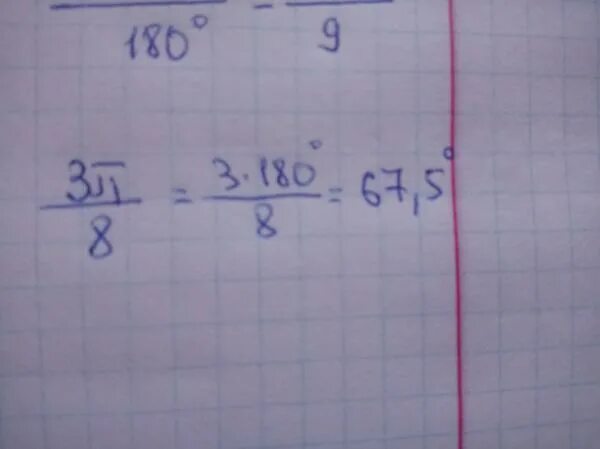 180° = 9
3π/8 = 3·180°/8 = 67,5°